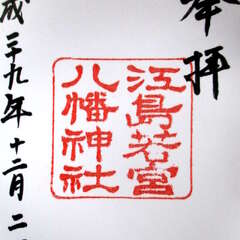 奉拝
江島若宮
八幡神社
成二十九年十二月二